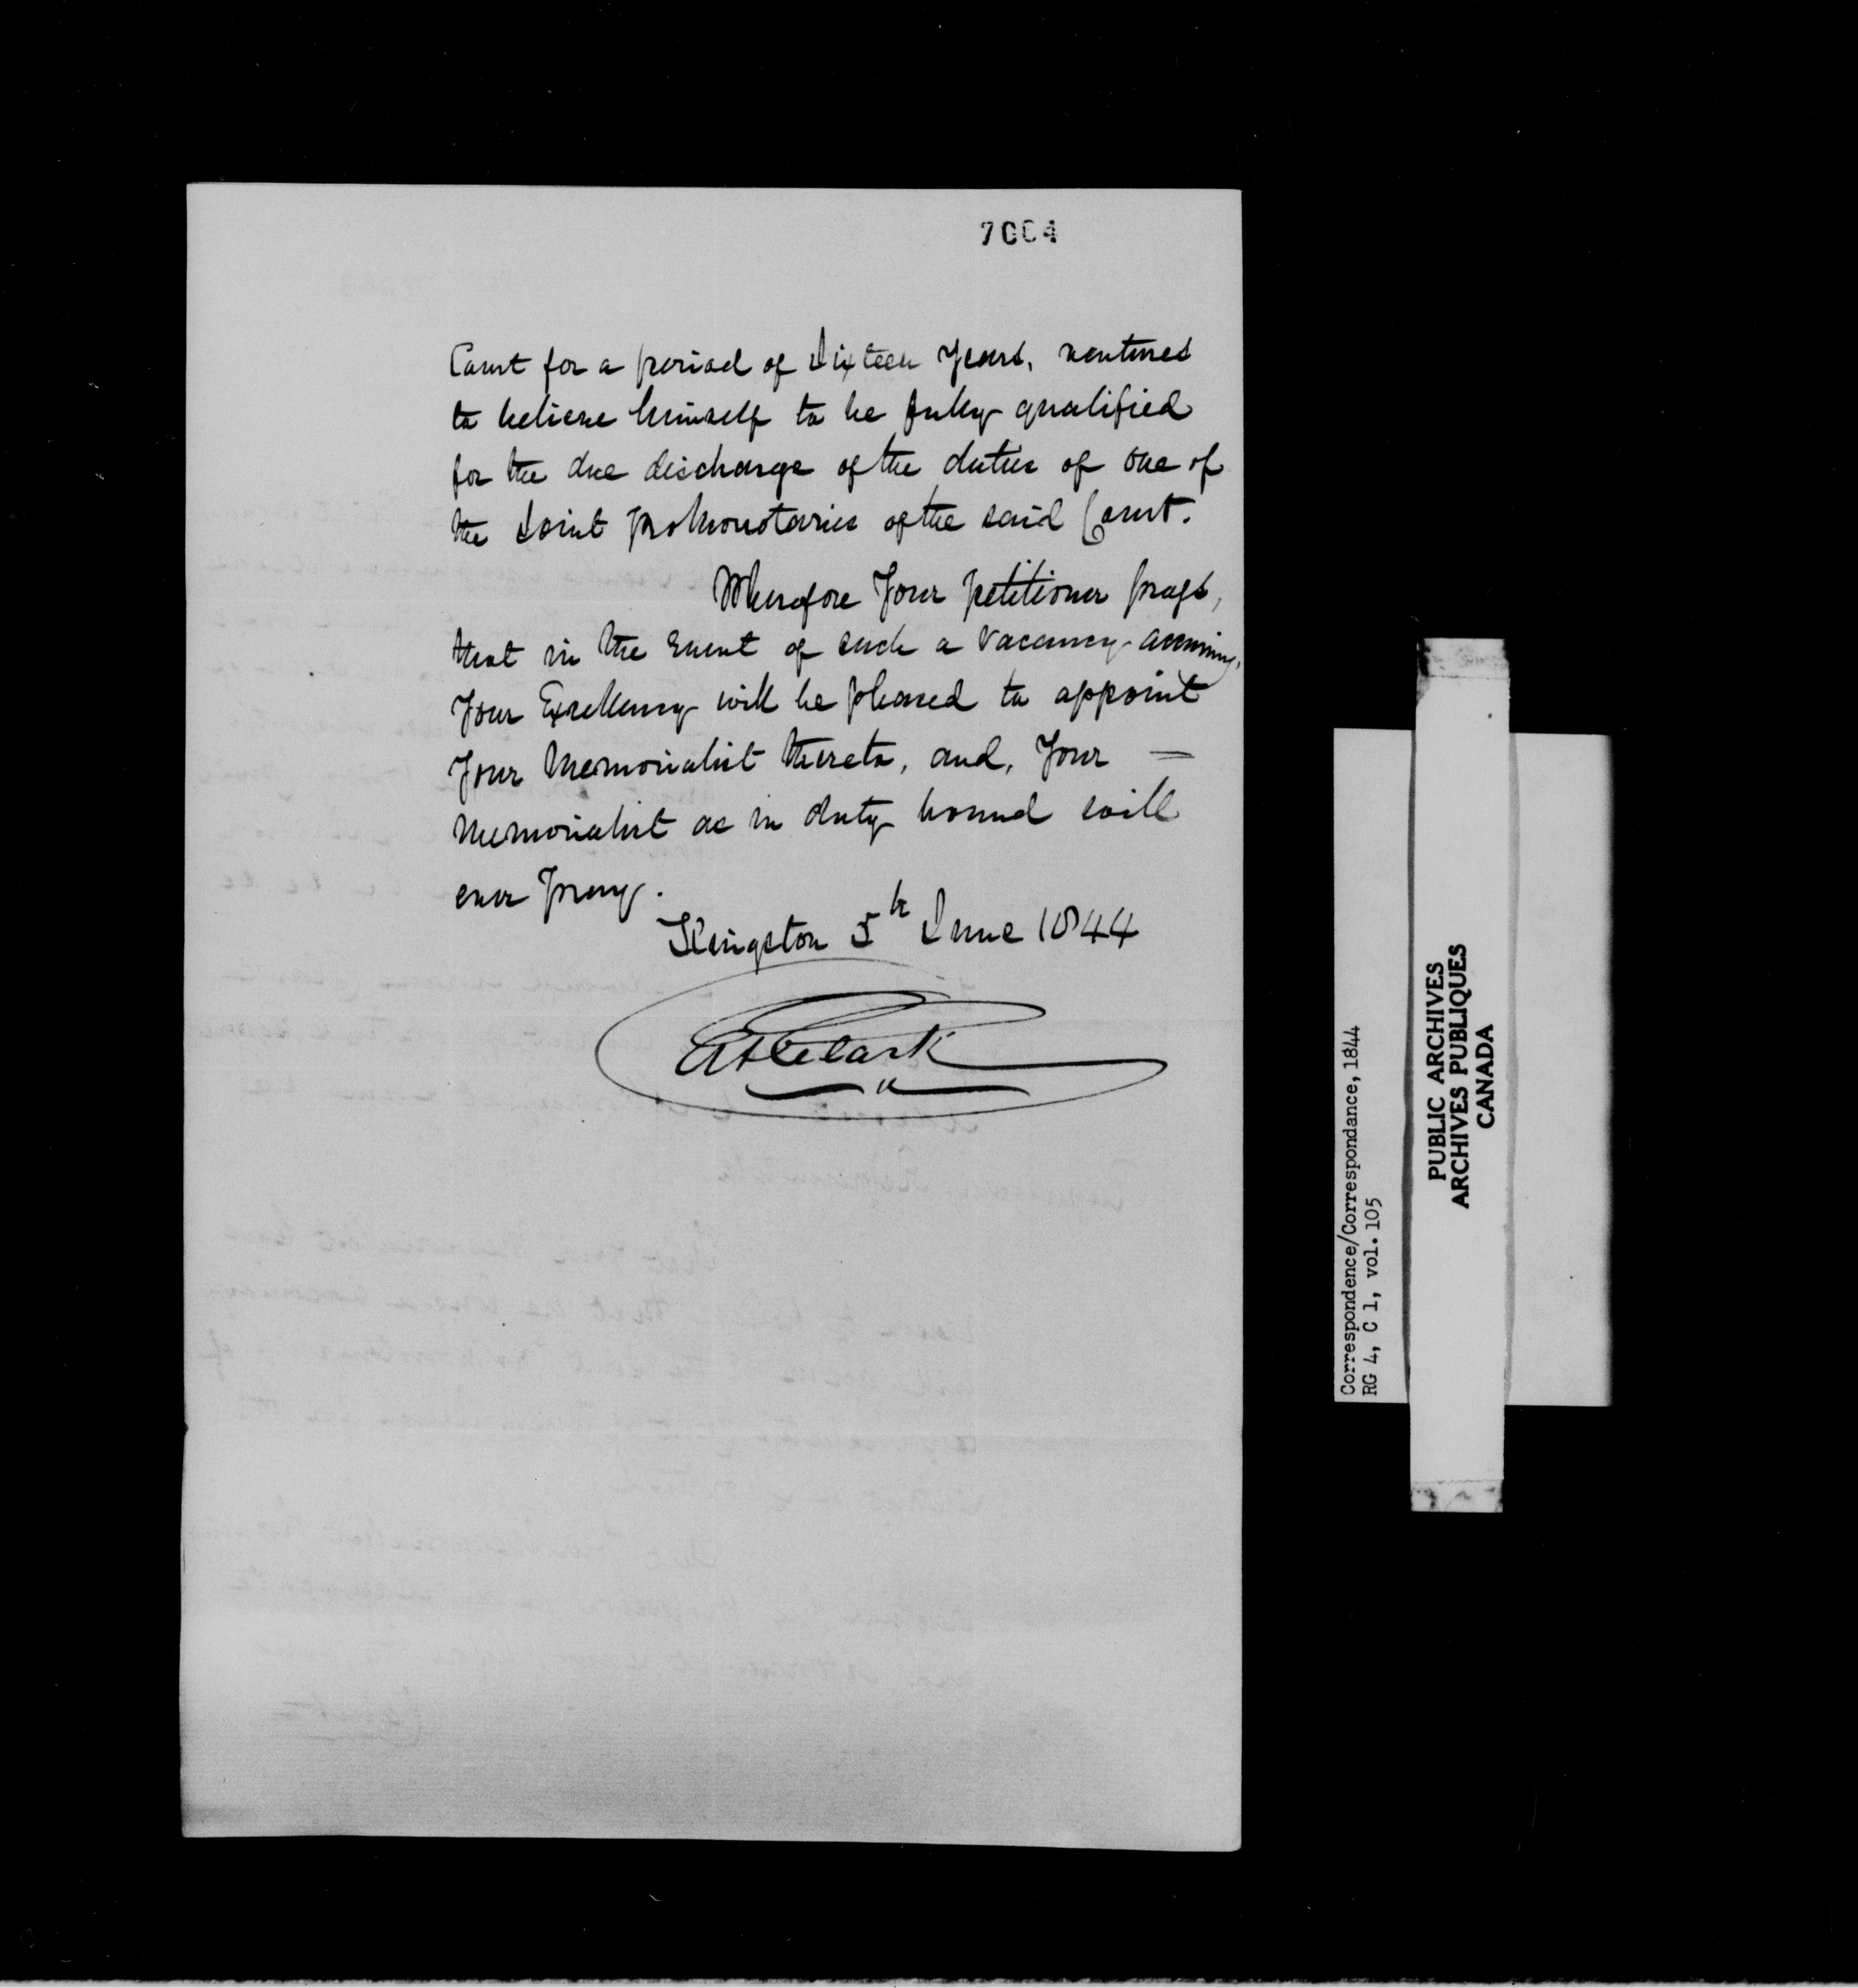 7004
Court for a period of Sixteen Years, ventures
to believe himself to be fully qualified
for the due discharge of the duties of one of
the Joint prothonotaries of the said Court.
Wherefore Your petitioner prays,
that in the Event of such a Vacancy
Your Excellency will be pleased to appoint
Your Memorialist thereto, and, Your =
Memorialist as in duty bound will
ever pray.
Kingston 5th June 1844
Clark
Correspondence/Correspondance, 1844
RG 4, C 1, vol. 105
PUBLIC ARCHIVES
ARCHIVES PUBLIQUES
CANADA